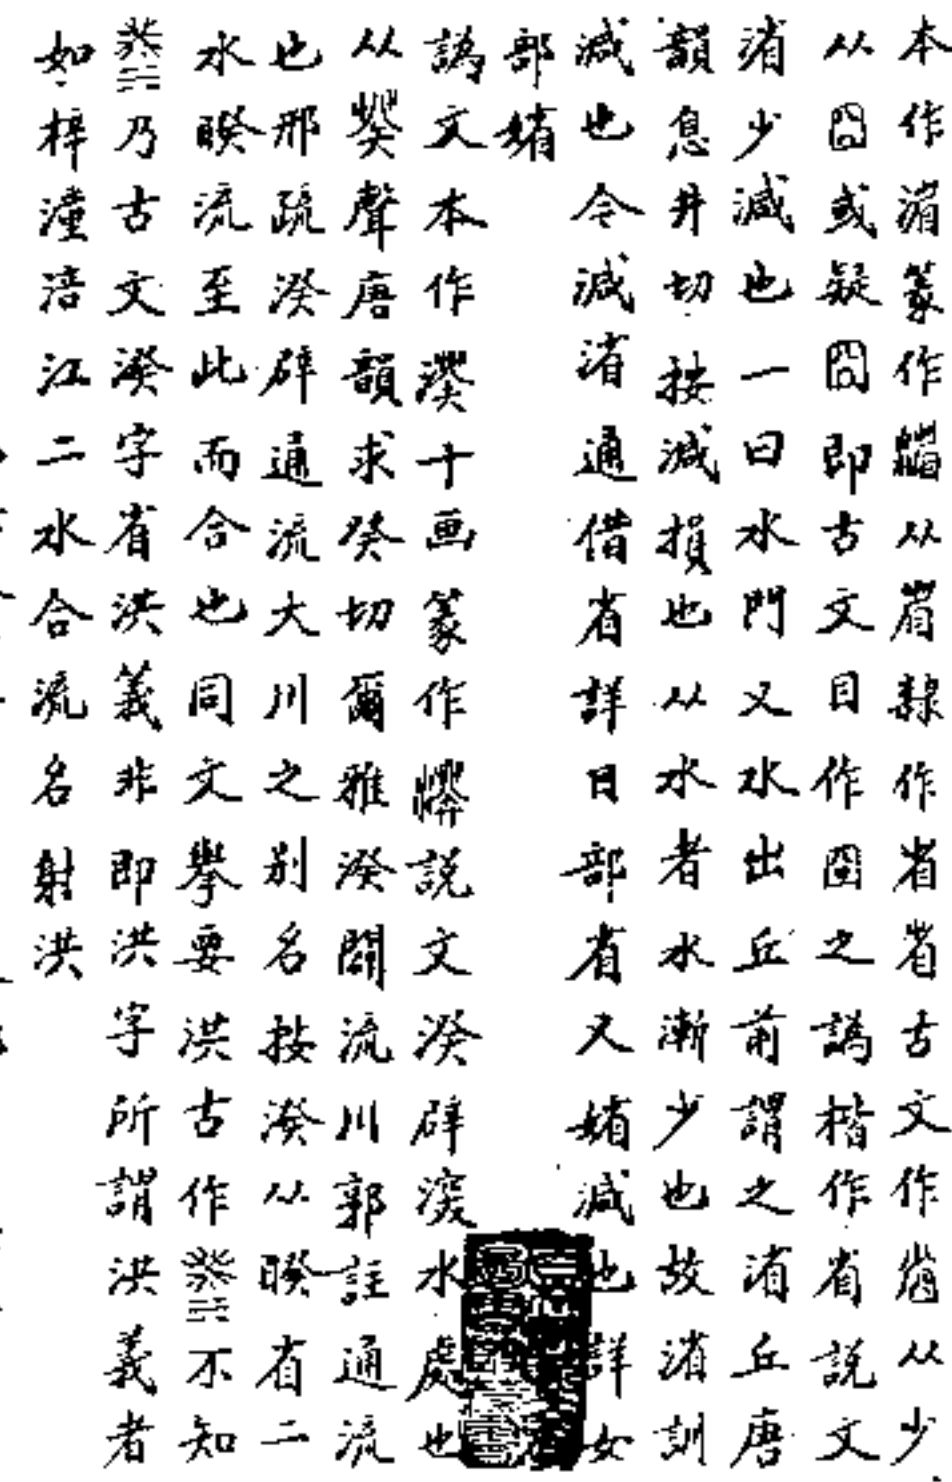 本作渻篆作𣻏从眉隸作省省古文作𥄎从少
从囧或疑囧即古文目作囶之譌楷作省說文
渻少減也一曰水門又水出丘前謂之渻丘唐
韻息井切按減損也从水者水漸少也故渻訓
減也今減渻通借省詳目部省又媘減也詳女
部媘
譌文本作湀十画篆作說文湀辟深水處也
从聲唐韻求癸切爾雅湀闢流川郭註通流
也邢疏湀辟通流大川之別名按湀从睽省二
水睽流至此而合也同文舉要洪古作不知
乃古文湀字省洪義非即洪字所謂洪義者
如梓潼涪江二水合流名射洪